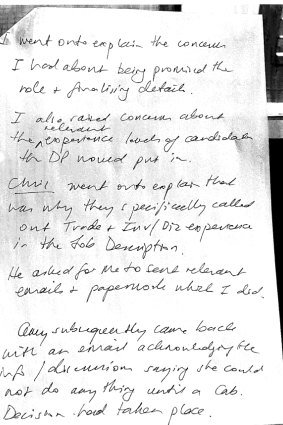 I went onto explain the concern
I had about being promised the
role & finalising details.
I also raised concerns about
the relevant experience levels of candidates
the DP would put in.
Chris went onto explain that
was why they specifically called
out Trade & Inv/Biz experience
in the Job Description.
He asked for me to send relevant
emails & paperwork which I did.
Amy subsequently came back
with an email acknowledging the
info / discussions saying she could
not do anything until a Cab.
Decision had taken place.